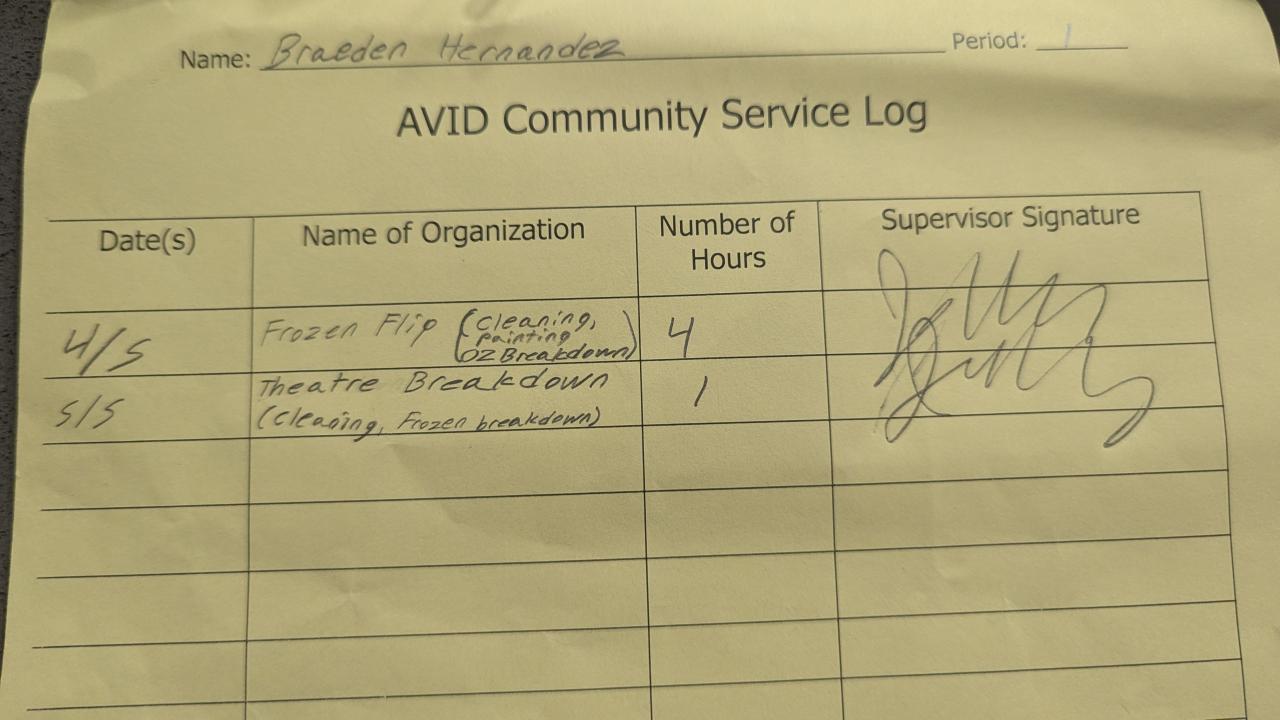 Name: Braeden Hernandez Period: 1
AVID Community Service Log
Date(s) Name of Organization Number of Hours Supervisor Signature
4/5 Frozen Flip (cleaning, painting OZ Breakdown) 4
5/5 Theatre Breakdown (cleaning, Frozen breakdown) 1